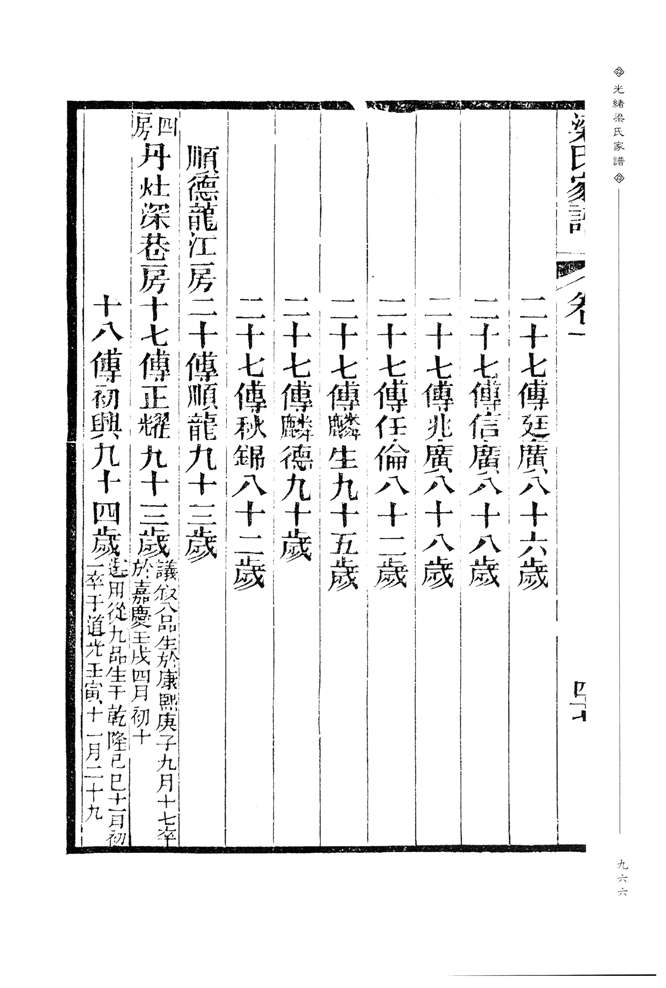 光緒梁氏家譜
九六六
梁氏家譜 卷一 四十七
二十七傳廷廣八十六歲
二十七傳信廣八十八歲
二十七傳兆廣八十八歲
二十七傳任倫八十二歲
二十七傳麟生九十五歲
二十七傳麟德九十歲
二十七傳秋錦八十二歲
順德龍江房二十傳順龍九十三歲
四房丹灶深巷房十七傳正耀九十三歲議敘八品生於康熙庚子九月十七卒
於嘉慶壬戌四月初十
十八傳初興九十四歲選用從九品生于乾隆己巳十一月初
一卒于道光壬寅十一月二十九